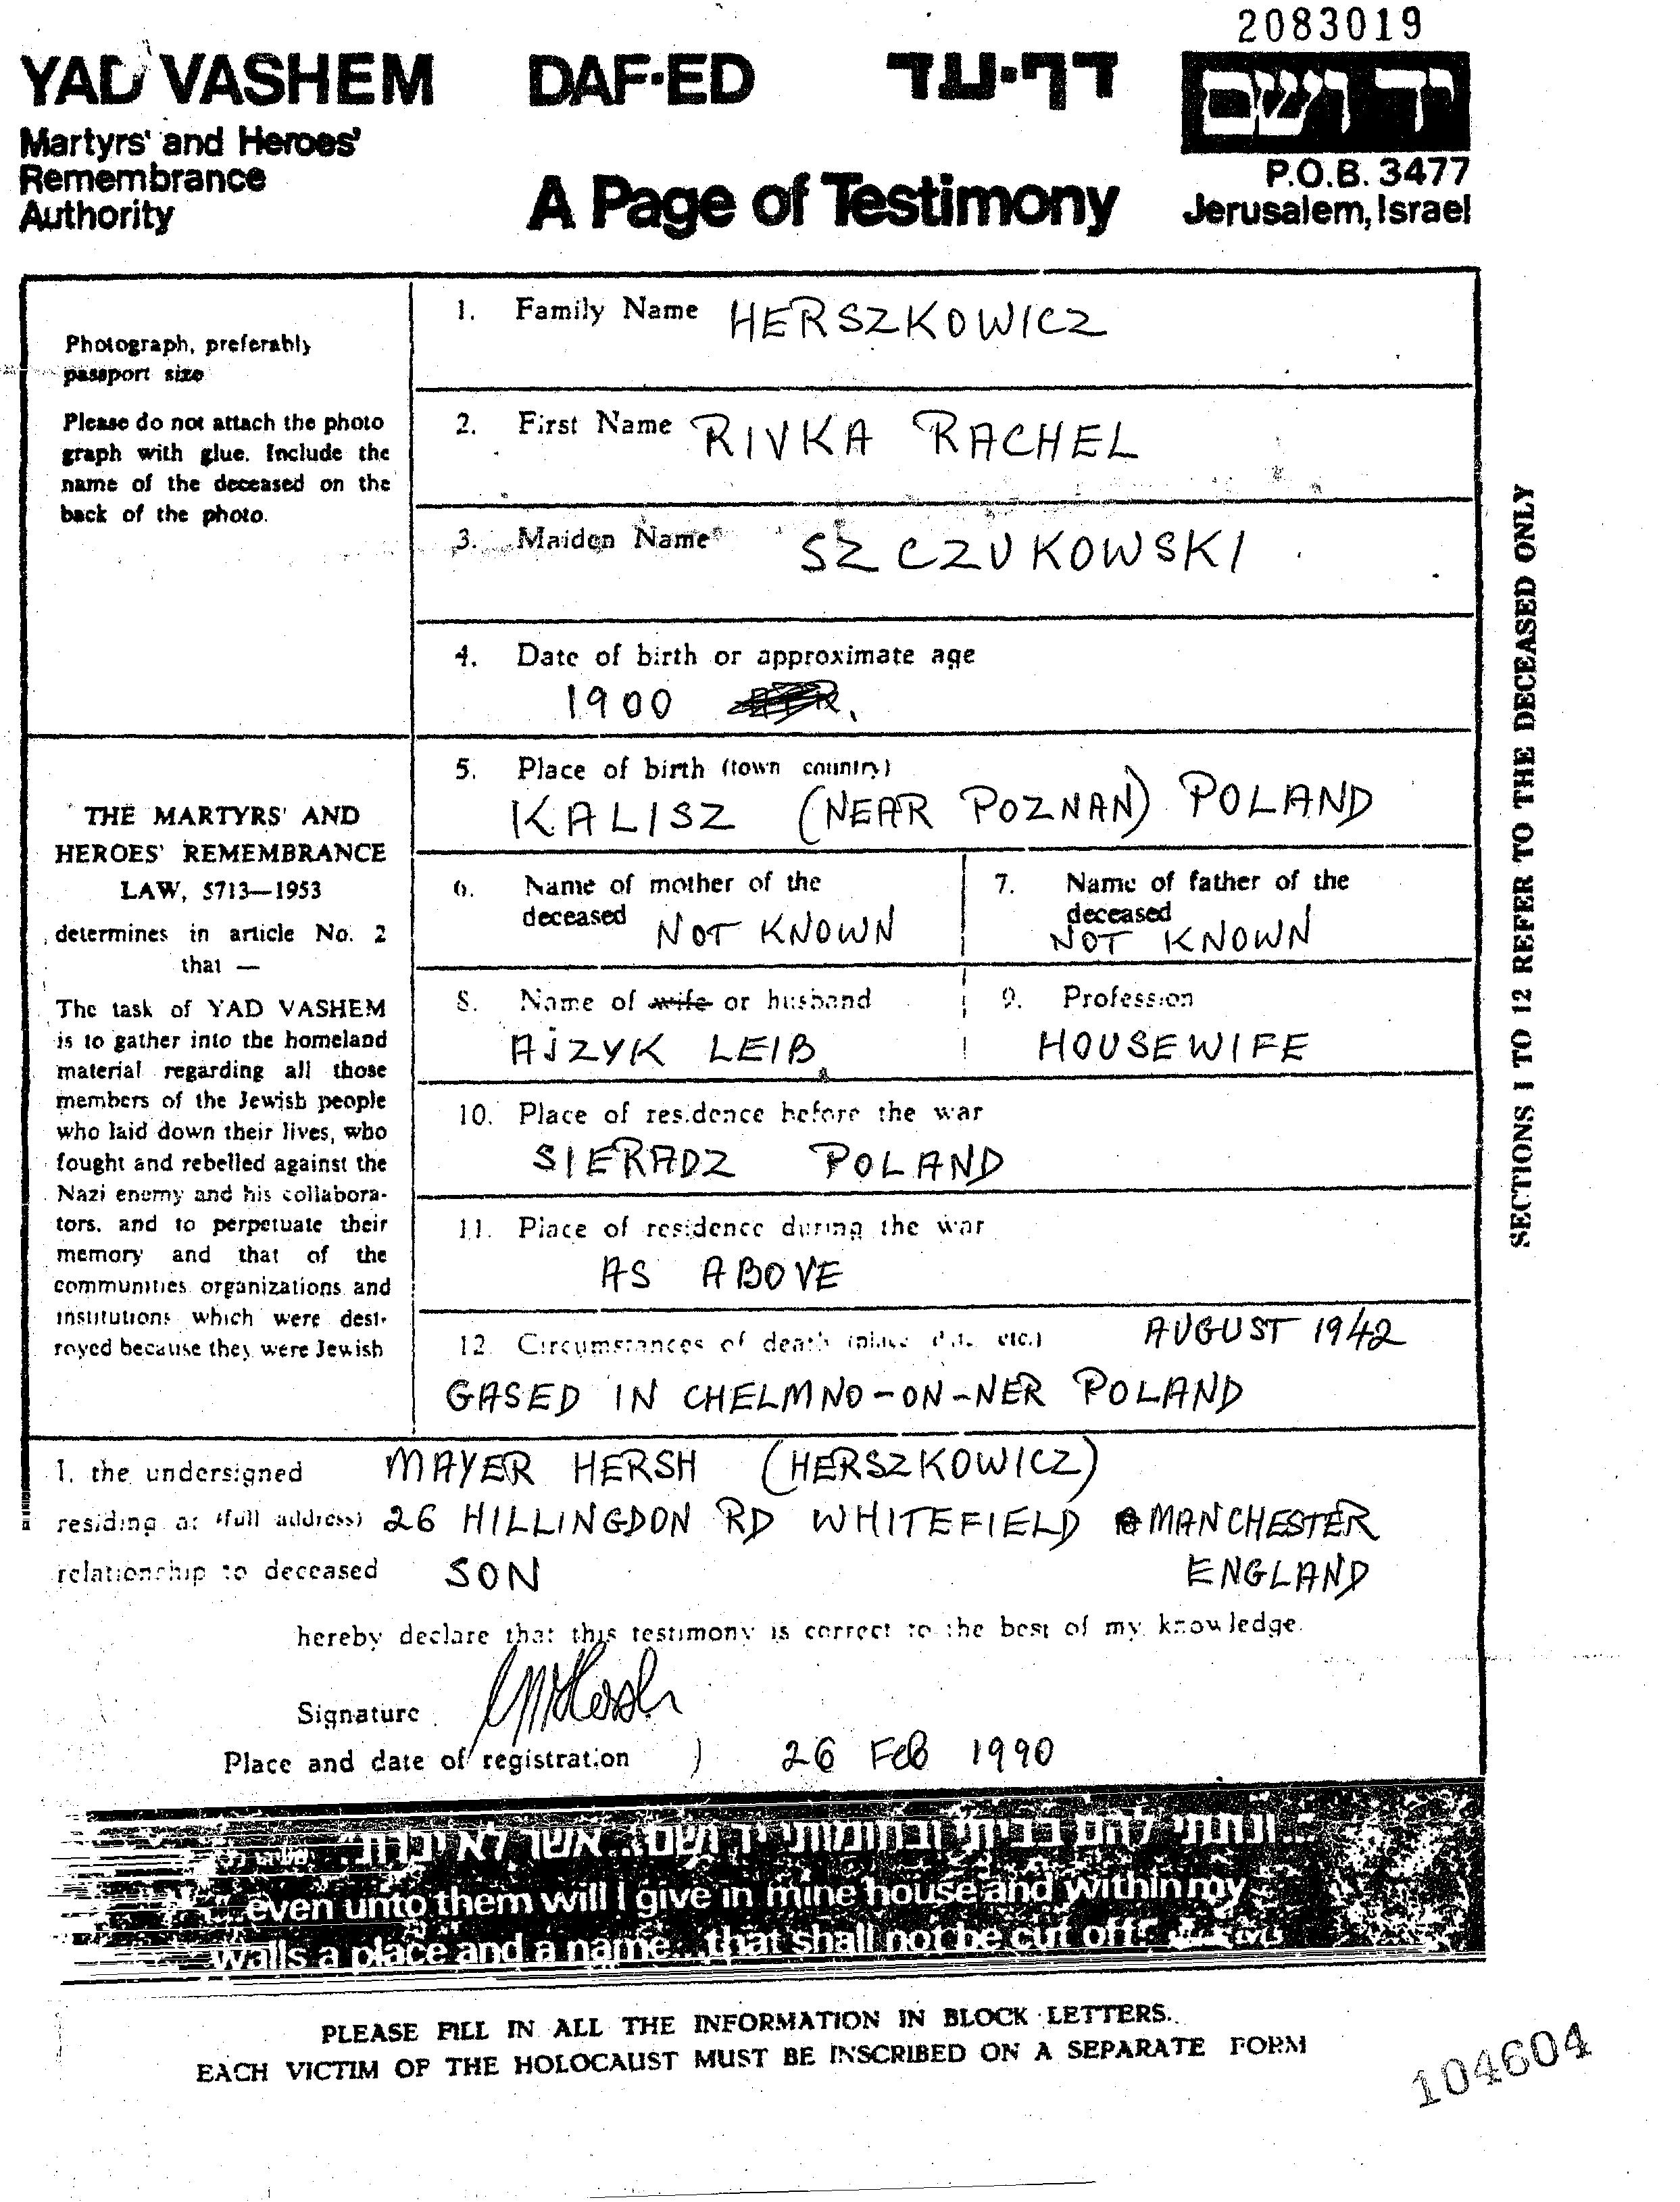 2083019
YAD VASHEM DAF-ED דף-עד יד ושם
Martyrs' and Heroes'
Remembrance
Authority
A Page of Testimony
P.O.B. 3477
Jerusalem, Israel
Photograph, preferably
passport size
Please do not attach the photo
graph with glue. Include the
name of the deceased on the
back of the photo.
THE MARTYRS' AND
HEROES' REMEMBRANCE
LAW, 5713—1953
determines in article No. 2
that —
The task of YAD VASHEM
is to gather into the homeland
material regarding all those
members of the Jewish people
who laid down their lives, who
fought and rebelled against the
Nazi enemy and his collabora-
tors, and to perpetuate their
memory and that of the
communities organizations and
institutions which were dest-
royed because they were Jewish
1. Family Name HERSZKOWICZ
2. First Name RIVKA RACHEL
3. Maiden Name SZCZUKOWSKI
4. Date of birth or approximate age
1900
5. Place of birth (town country)
KALISZ (NEAR POZNAN) POLAND
6. Name of mother of the
deceased NOT KNOWN
7. Name of father of the
deceased
NOT KNOWN
8. Name of wife or husband
AJZYK LEIB
9. Profession
HOUSEWIFE
10. Place of residence before the war
SIERADZ POLAND
11. Place of residence during the war
AS ABOVE
12. Circumstances of death (place, date, etc.) AUGUST 1942
GASED IN CHELMNO-ON-NER POLAND
SECTIONS 1 TO 12 REFER TO THE DECEASED ONLY
I, the undersigned MAYER HERSH (HERSZKOWICZ)
residing at (full address) 26 HILLINGDON RD WHITEFIELD MANCHESTER
ENGLAND
relationship to deceased SON
hereby declare that this testimony is correct to the best of my knowledge.
Signature MHersh
Place and date of registration ) 26 FEB 1990
...ונתתי להם בביתי ובחומותי יד ושם... אשר לא יכרת"
"...even unto them will I give in mine house and within my
walls a place and a name...that shall not be cut off."
PLEASE FILL IN ALL THE INFORMATION IN BLOCK LETTERS.
EACH VICTIM OF THE HOLOCAUST MUST BE INSCRIBED ON A SEPARATE FORM
104604